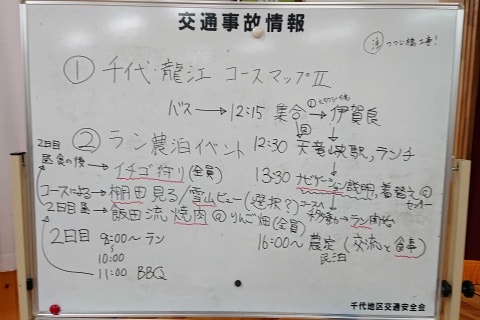 交通事故情報
注 つつじ橋工事!
① 千代・龍江 コースマップⅡ
バス→12:15 集合→伊賀良
② ラン農泊イベント
12:30 天竜峡駅,ランチ
2日目
昼食の後→イチゴ狩り(全員)
13:30 ナビゲーション説明,着替え@
センター
コースによる→棚田見る/雪山ビュー(選択?)
コースへ
→ラン開始
2日目昼→飯田流焼肉@りんご畑(全員)
2日目 9:00〜ラン
16:00〜 農家(交流と食事)
民泊
10:00
11:00 BBQ
千代地区交通安全会